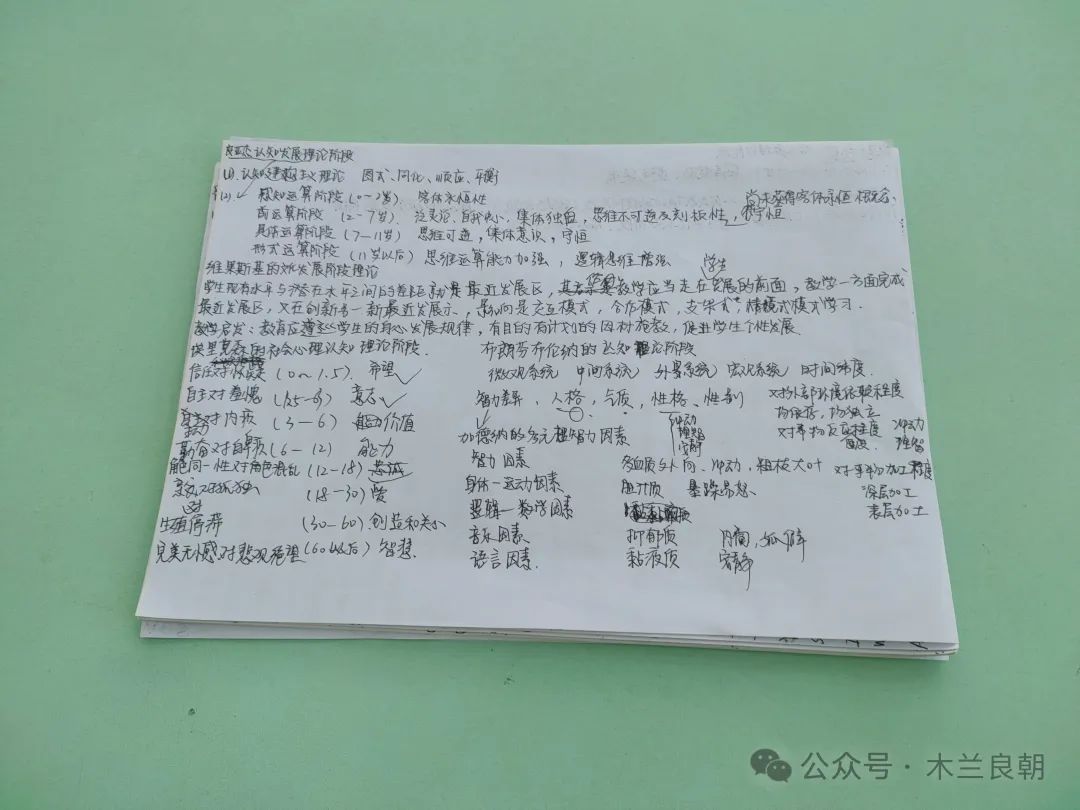 皮亚杰认知发展理论阶段
(1) 认知建构主义理论 图式、同化、顺应、平衡
(2) 感知运算阶段 (0-2岁) 客体永恒性 尚未获得客体永恒概念
前运算阶段 (2-7岁) 泛灵论、自我中心、集体独白,思维不可逆及刻板性,守恒
具体运算阶段 (7-11岁) 思维可逆,集体意识,守恒
形式运算阶段 (11岁以后) 思维运算能力加强,逻辑思维增强
维果斯基的 发展阶段理论 学生
学生现有水平与潜在水平之间的差距就是最近发展区,其 教学应当走在发展的前面,教学一方面完成
最近发展区,又在创新另一新最近发展 , 向是交互模式,合作模式,支架式, 情境式模式学习.
教学启发:教育应遵 学生的身心发展规律,有目的有计划的因材施教,促进学生个性发展
埃里克森的社会心理认知理论阶段. 布朗芬布伦纳的认知理论阶段
信任对怀疑 (0~1.5) 希望 微观系统 中间系统 外层系统 宏观系统 时间纬度.
自主对羞愧 (1.5-3) 意志 智力差异、人格,气质,性格、性别 对外部环境依赖程度
自主 对内疚 (3-6) 能动价值 冲动 理智 安静 场依存,场独立
主动 加德纳的多元 智力因素 对事物反应程度 冲动
勤奋对自卑 (6-12) 能力 智力因素 理智
角色同一性对角色混乱 (12-18) 忠诚 多血质 外向、冲动,粗枝大叶 对事物加工程度
亲密对孤独 (18-30) 爱 身体-运动因素 胆汁质 暴躁易怒 深层加工
逻辑-数学因素 表层加工
生殖 停滞 (30-60) 创造和关心 音乐因素 抑郁质 内向,孤僻
完美无憾对悲观绝望 (60以后) 智慧. 语言因素. 黏液质 安静
公众号·木兰良朝